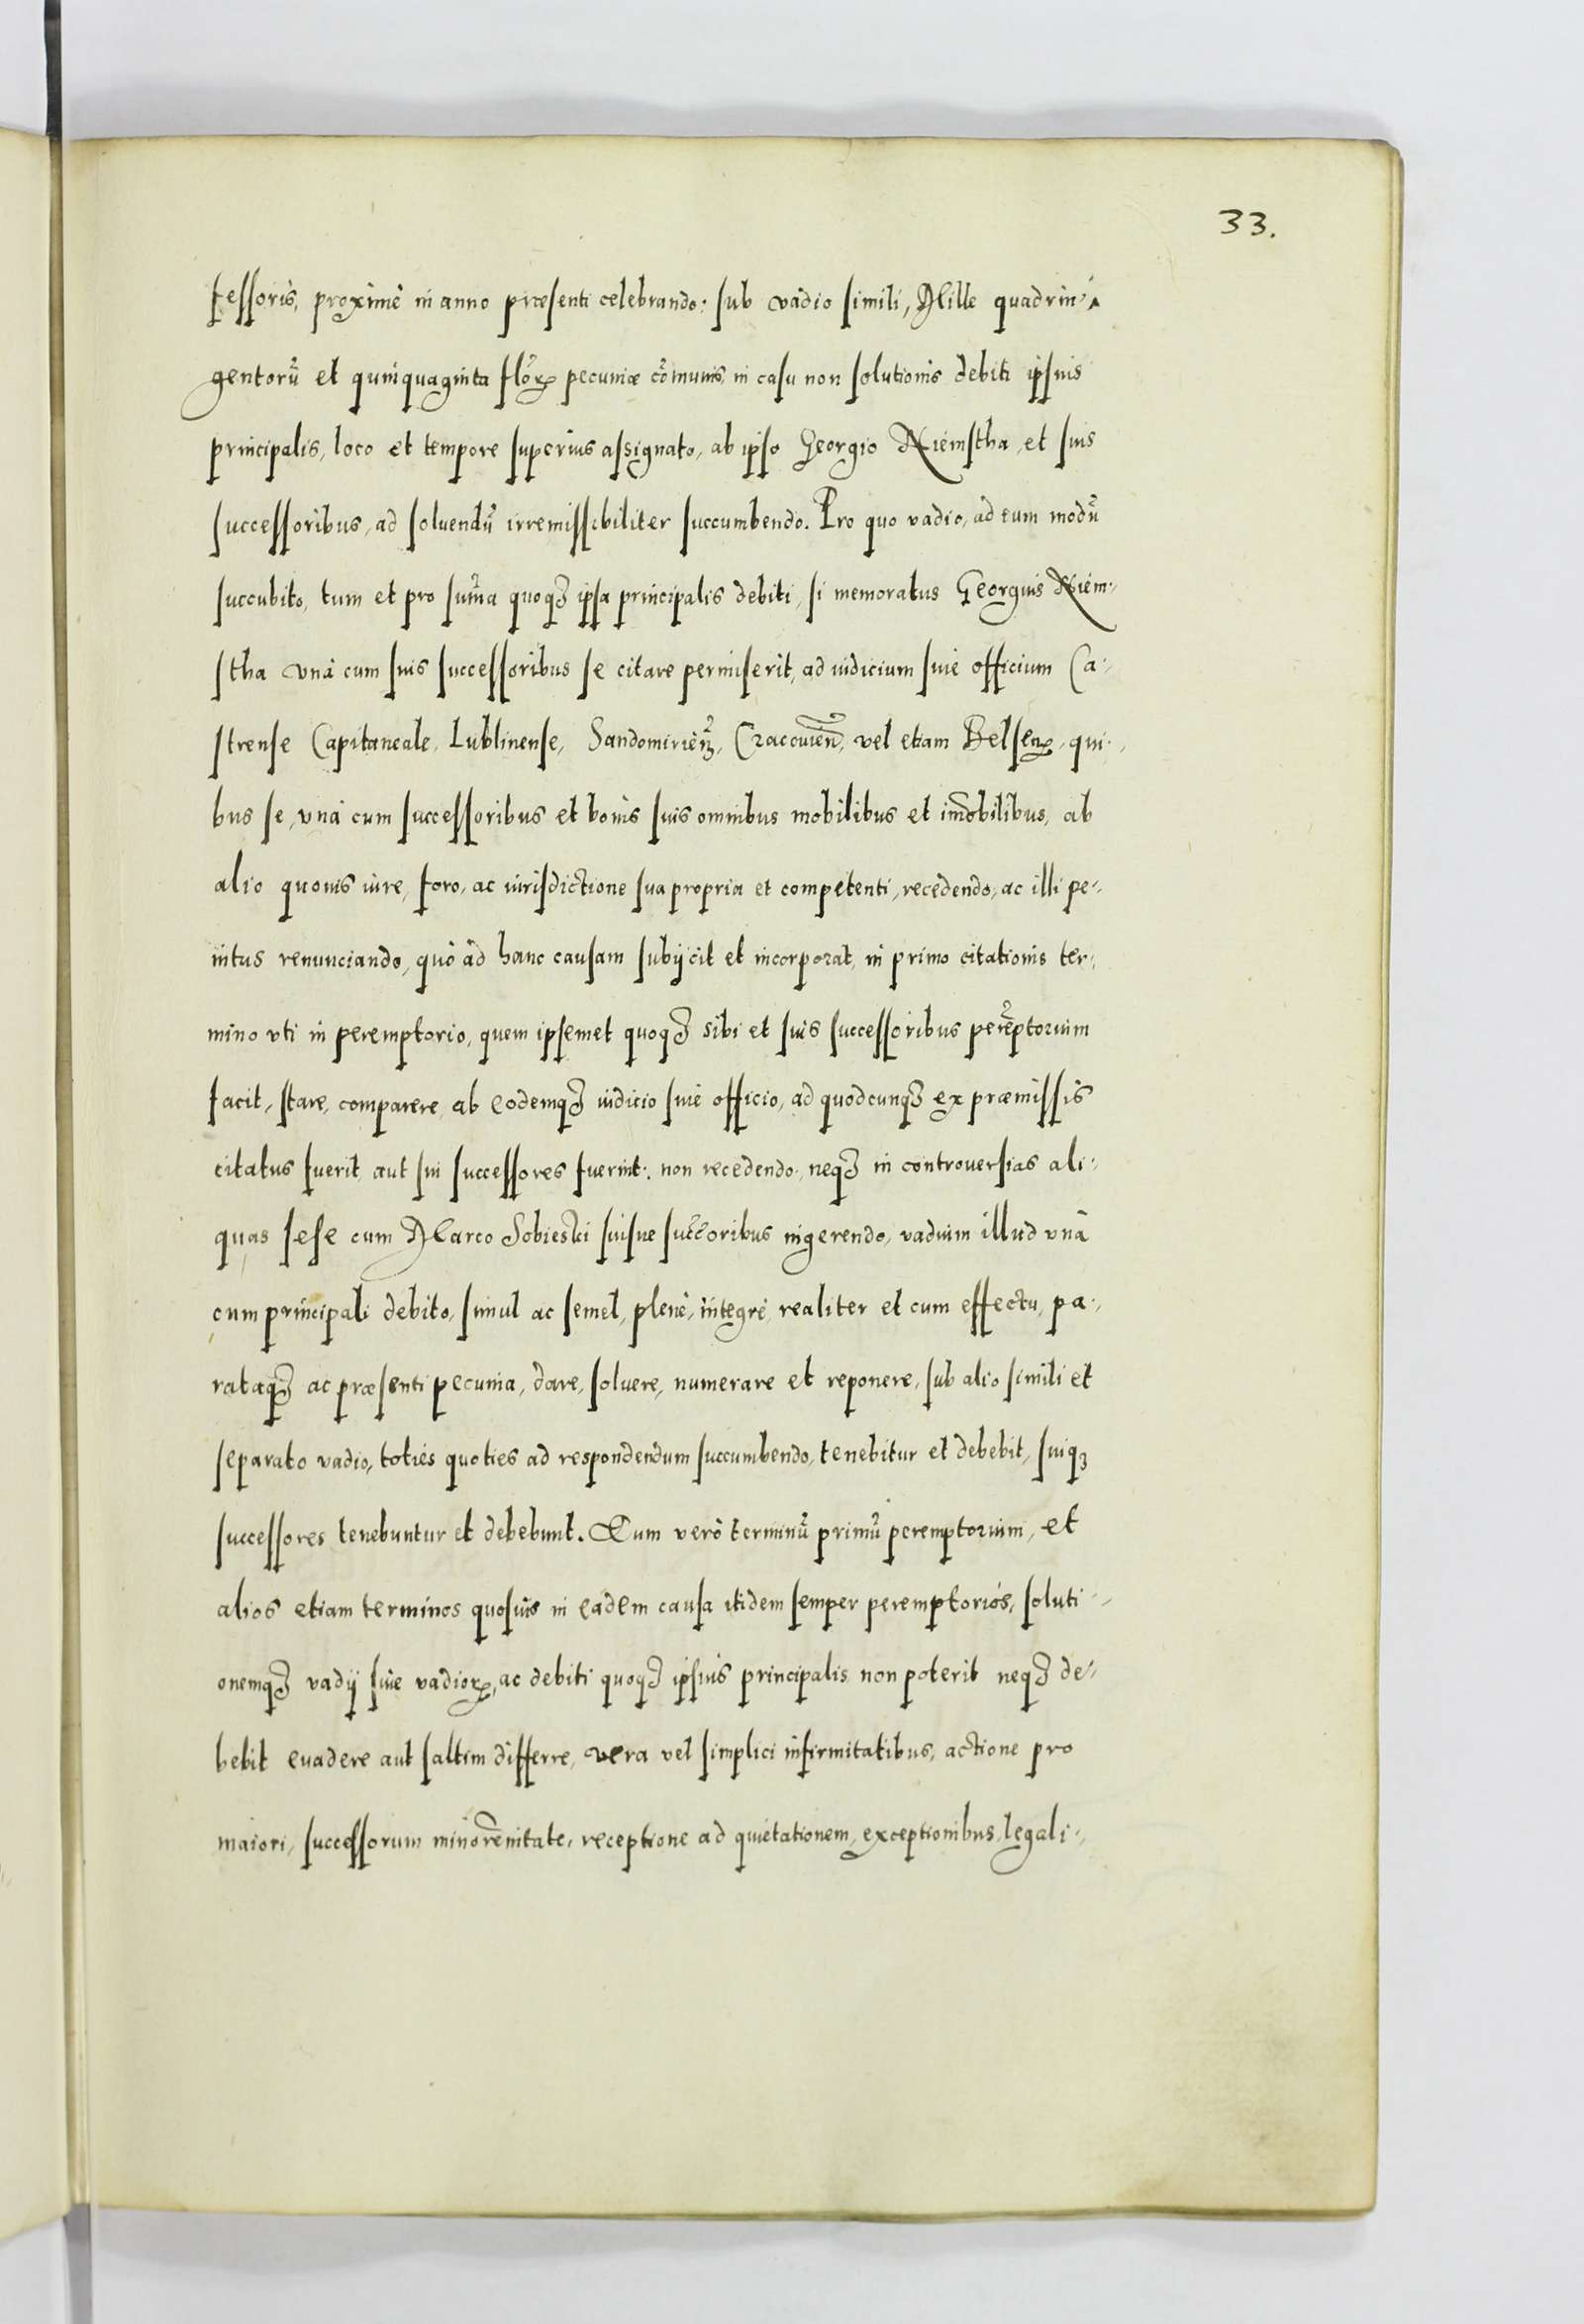 33.
fessoris, proximè in anno præsenti celebrando: sub vadio simili, Mille quadrin-
gentorũ et quinquaginta florꝝ pecuniæ cõmunis, in casu non solutionis debiti ipsius
principalis, loco et tempore superius assignato, ab ipso Georgio Niemstha, et suis
successoribus, ad soluendũ irremissibiliter succumbendo. Pro quo vadio, ad eum modũ
succubito, tum et pro sum̃a quoqꝫ ipsa principalis debiti, si memoratus Georgius Niem-
stha vnà cum suis successoribus se citare permiserit, ad iudicium siue officium Ca-
strense Capitaneale, Lublinense, Sandomirieñ, Cracouieñ, vel etiam Belseñ, qui-
bus se, vnà cum successoribus et bonis suis omnibus mobilibus et im̃obilibus, ab
alio quouis iure, foro, ac iurisdictione sua propria et competenti, recedendo, ac illi pe-
nitus renunciando, quò ad hanc causam subijcit et incorporat, in primo citationis ter-
mino vti in peremptorio, quem ipsemet quoqꝫ sibi et suis successoribus perẽptorium
facit, stare, comparere, ab eodemqꝫ iudicio siue officio, ad quodcunqꝫ ex præmissis
citatus fuerit, aut sui successores fuerint: non recedendo, neqꝫ in controuersias ali-
quas sese cum Marco Sobieski suisue succ̃oribus ingerendo, vadium illud vnà
cum principali debito, simul ac semel, plenè, integrè, realiter et cum effectu, pa-
rataqꝫ ac præsenti pecunia, dare, soluere, numerare et reponere, sub alio simili et
separato vadio, toties quoties ad respondendum succumbendo, tenebitur et debebit, suiqꝫ
successores tenebuntur et debebunt. Eum verò terminũ primũ peremptorium, et
alios etiam terminos quosuis in eadem causa itidem semper peremptorios, soluti-
onemqꝫ vadij siue vadioꝝ, ac debiti quoqꝫ ipsius principalis non poterit neqꝫ de-
bebit euadere aut saltim differre, vera vel simplici infirmitatibus, actione pro
maiori, successorum minorẽnitate, receptione ad quietationem, exceptionibus, legali-